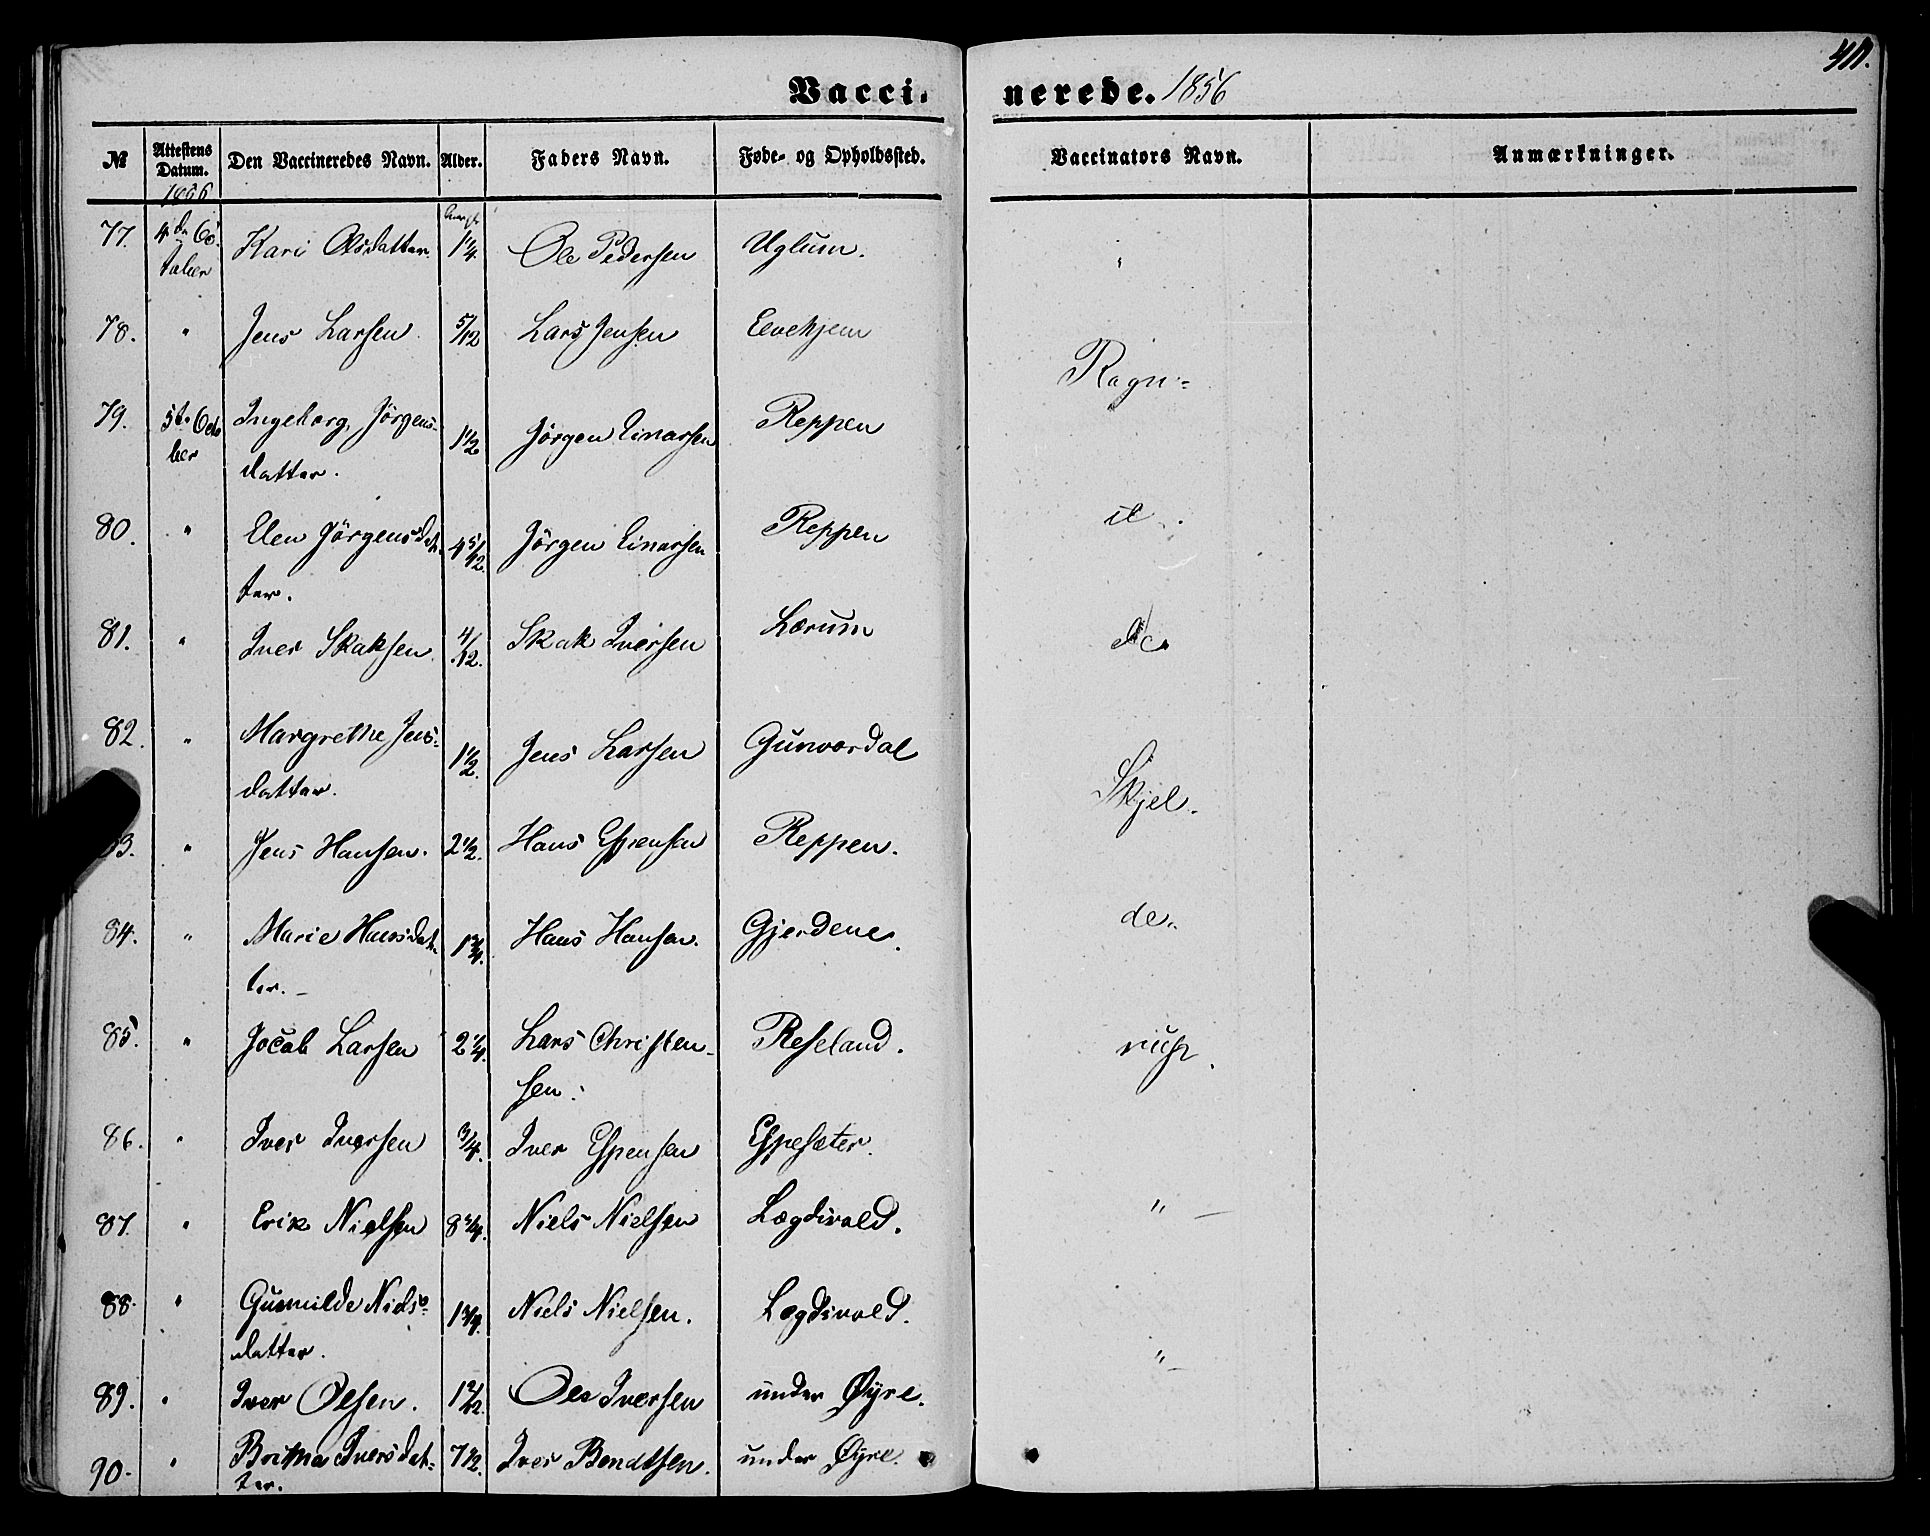 Vacci- nerede. 1856
№ Attestens Datum. Den Vaccineredes Navn. Alder. Faders Navn. Føde- og Opholdssted. Vaccinators Navn. Anmærkninger.
1856
77. 4de Oc- Kari Olsdatter 1 1/4 Ole Pedersen Uglum. "
tober
78. " Jens Larsen 5/12 Lars Jensen Eevehjem
Ragn-
79. 5te Octo Ingeborg Jörgens- 1 1/2 Jörgen Einarsen Reppen
ber datter.
80. " Elen Jörgensdat- 4 5/12. Jörgen Einarsen Reppen
ter.
81. " Iver Skaksen 4/12. Skak Iversen Lærum
82. " Margrethe Jens- 1 1/2. Jens Larsen Gunvordal
datter. Skjel-
83. " Jens Hansen. 2 1/2. Hans Espensen Reppen.
84. " Marie Hansdat- 1 3/4. Hans Hansen. Gjerdene. de-
ter. -
85. " Jacob Larsen 2 1/4. Lars Christen- Reseland. rup.
sen.
86. " Iver Iversen 3/4. Iver Espensen Espesæter.
87. " Erik Nielsen 8 3/4. Niels Nielsen Lægdivold. " -
88. " Gunnilde Niels- 1 3/4. Niels Nielsen. Lægdivold.
datter. " -
89. " Iver Olsen. Ole Iversen under Øyre.
90. " Britha Iversdat- 7 1/2. Iver Bendtsen. under Øyre.
ter.